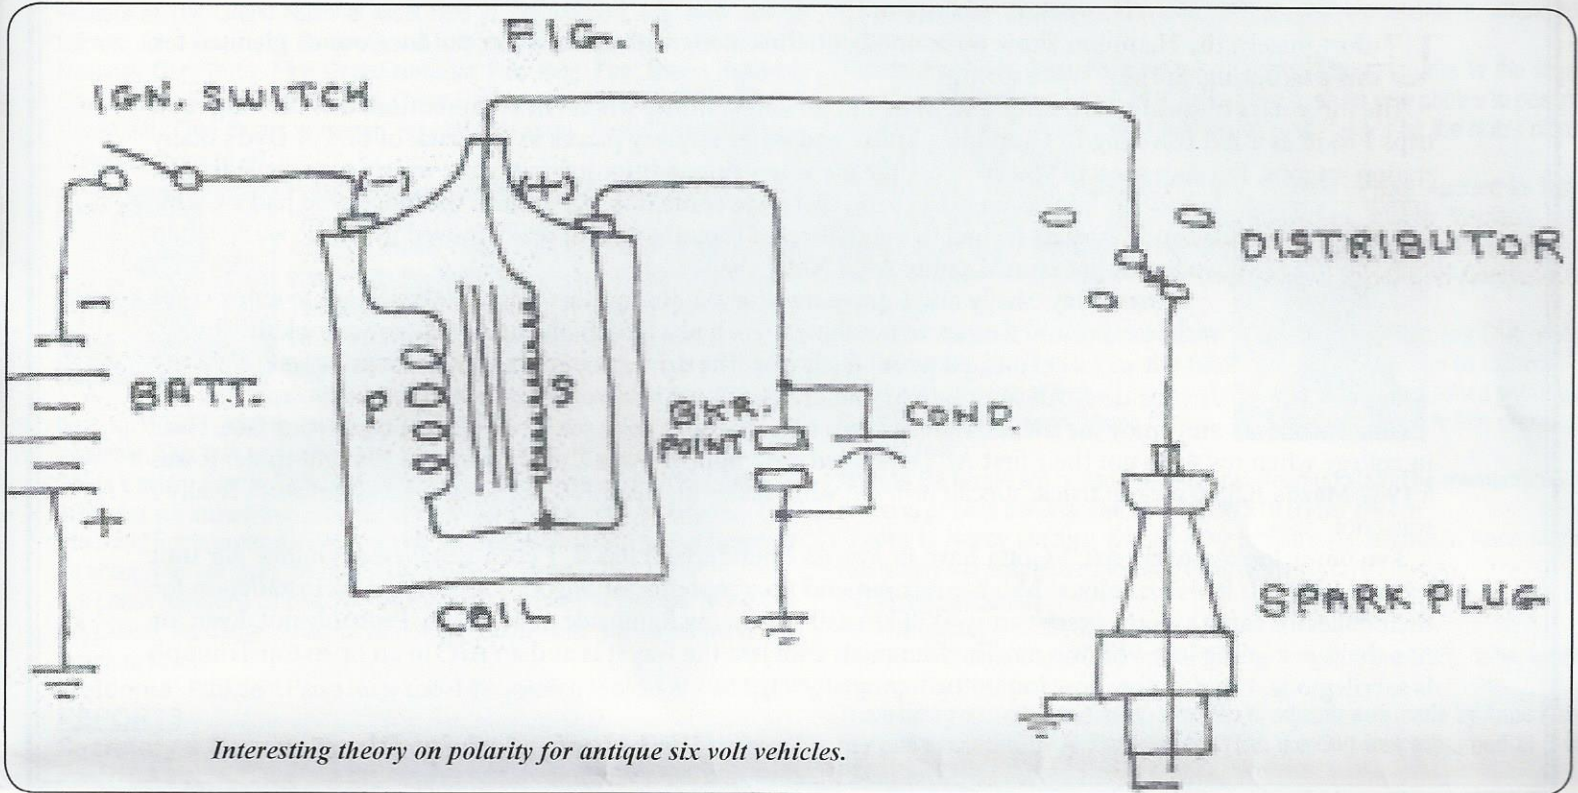 FIG. 1
IGN. SWITCH
(-)
(+)
DISTRIBUTOR
-
BATT.
P
S
BKR.
POINT
COND.
+
SPARK PLUG
COIL
Interesting theory on polarity for antique six volt vehicles.